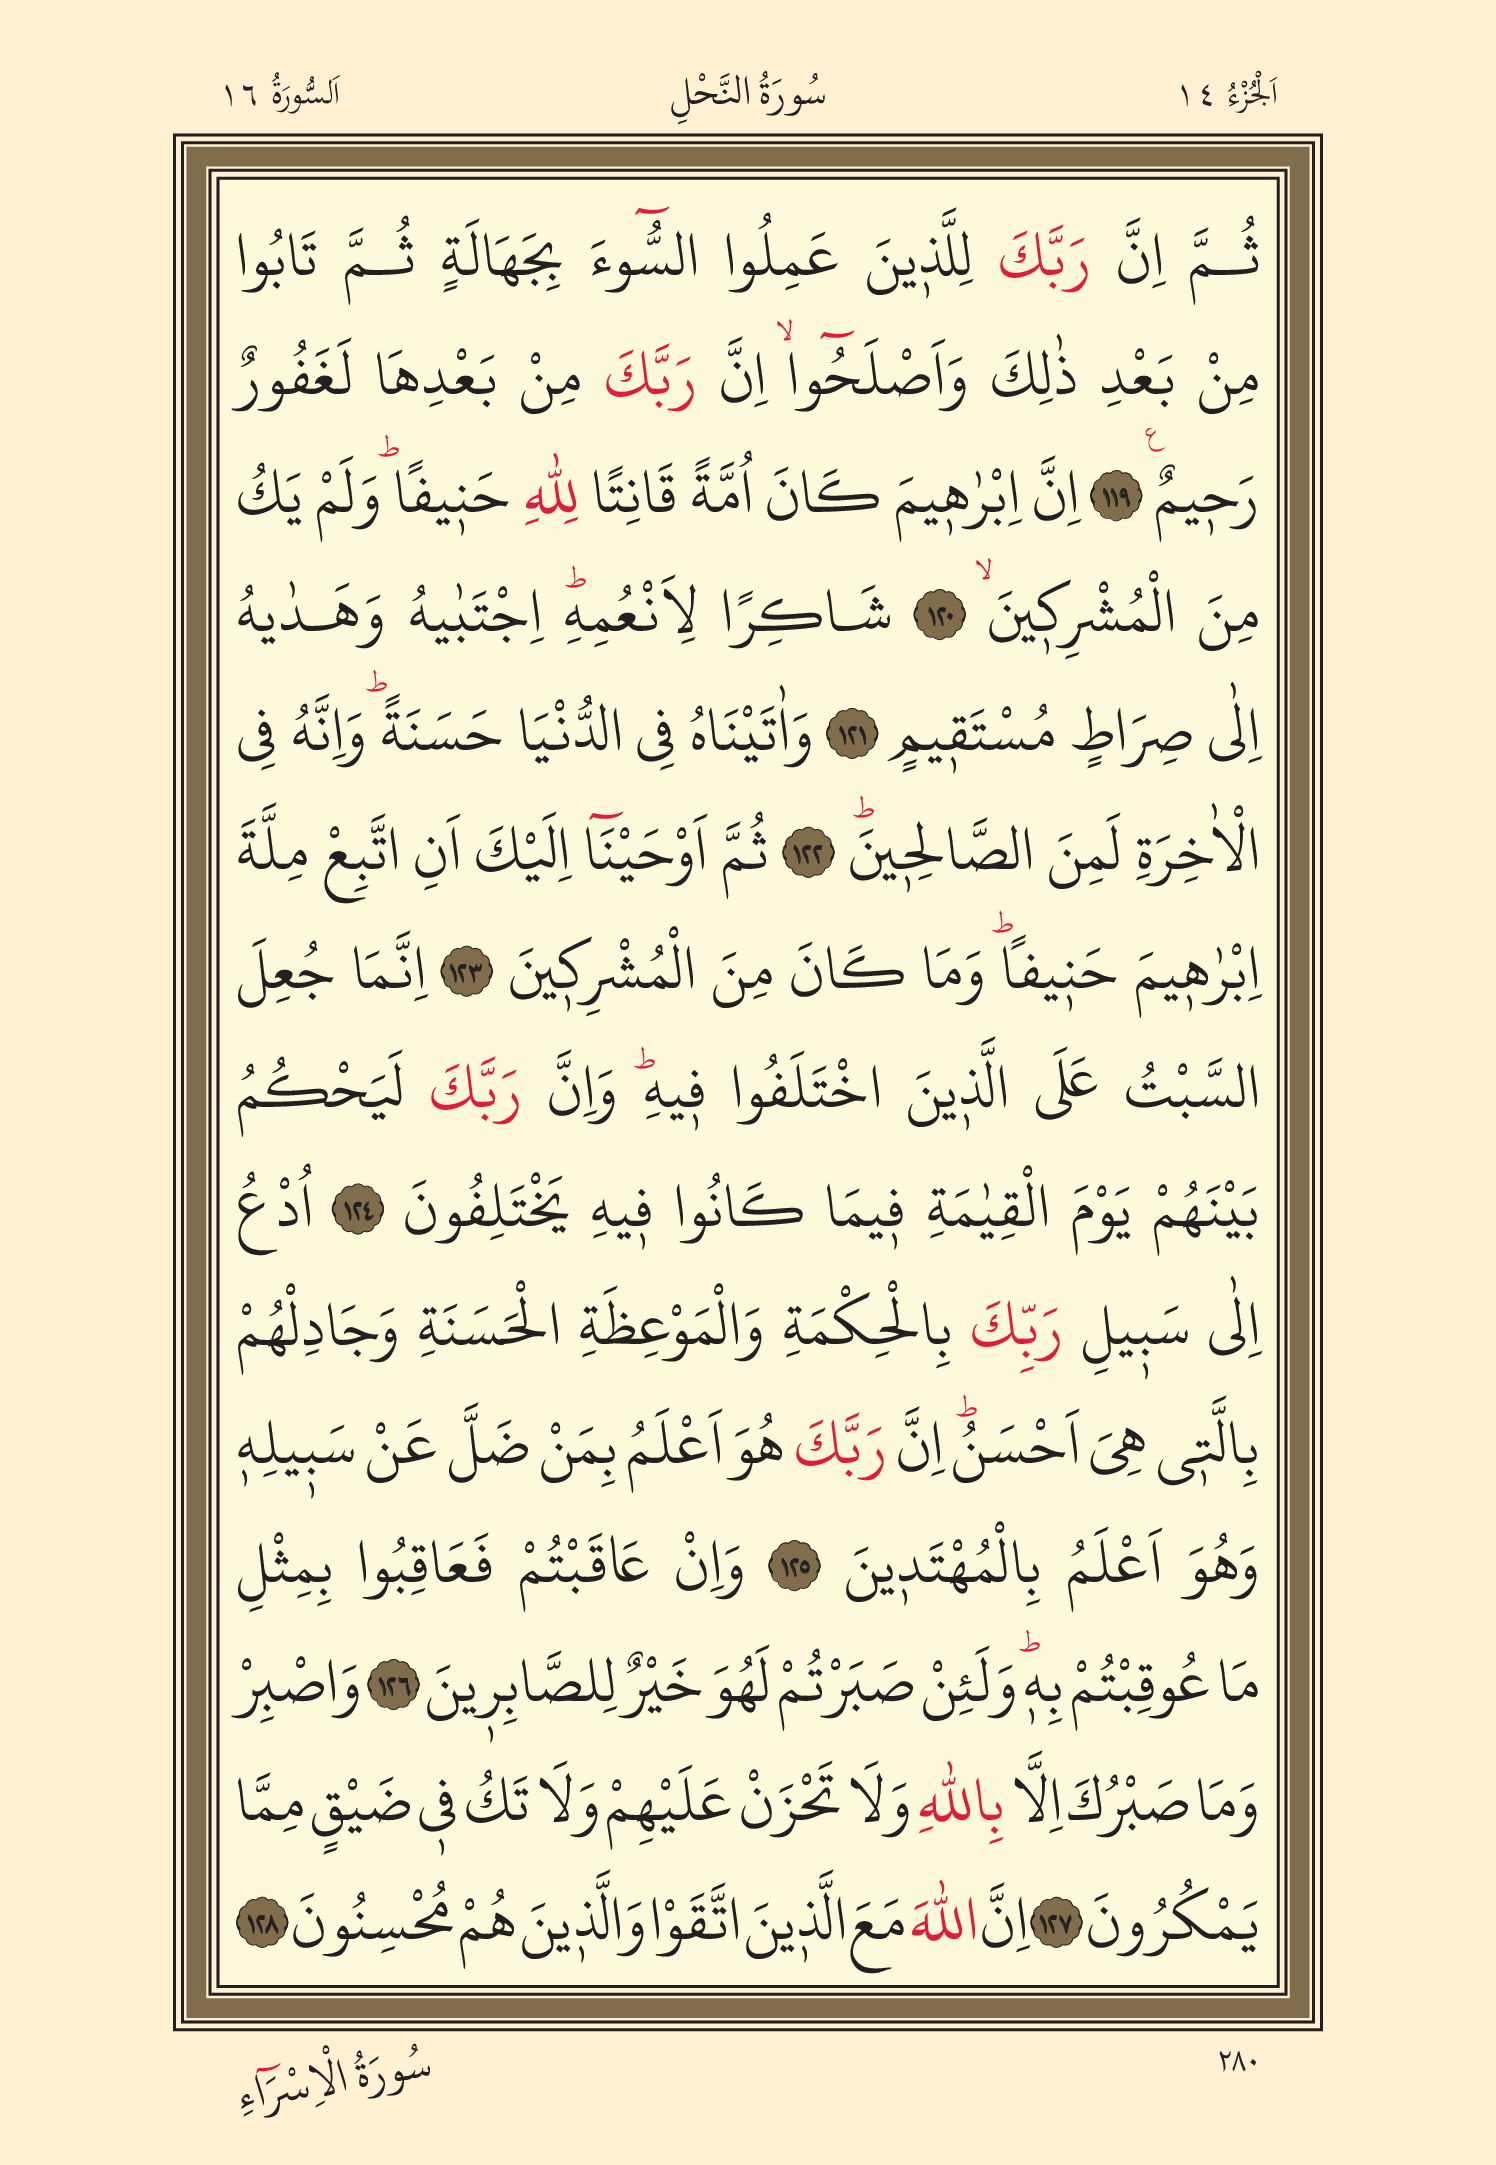 اَلْجُزْءُ ١٤
سُورَةُ النَّحْلِ
اَلسُّورَةُ ١٦
ثُـمَّ اِنَّ رَبَّكَ لِلَّذ۪ينَ عَمِلُوا السُّٓوءَ بِجَهَالَةٍ ثُـمَّ تَابُوا
مِنْ بَعْدِ ذٰلِكَ وَاَصْلَحُٓواۙ اِنَّ رَبَّكَ مِنْ بَعْدِهَا لَغَفُورٌ
رَح۪يمٌ۟ ﴿١١٩﴾ اِنَّ اِبْرٰه۪يمَ كَانَ اُمَّةً قَانِتًا لِلّٰهِ حَن۪يفًاۜ وَلَمْ يَكُ
مِنَ الْمُشْرِك۪ينَۙ ﴿١٢٠﴾ شَاكِرًا لِاَنْعُمِهِۜ اِجْتَبٰيهُ وَهَـدٰيهُ
اِلٰى صِرَاطٍ مُسْتَق۪يمٍ ﴿١٢١﴾ وَاٰتَيْنَاهُ فِى الدُّنْيَا حَسَنَةًۜ وَاِنَّهُ فِى
الْاٰخِرَةِ لَمِنَ الصَّالِح۪ينَۜ ﴿١٢٢﴾ ثُمَّ اَوْحَيْنَٓا اِلَيْكَ اَنِ اتَّبِعْ مِلَّةَ
اِبْرٰه۪يمَ حَن۪يفًاۜ وَمَا كَانَ مِنَ الْمُشْرِك۪ينَ ﴿١٢٣﴾ اِنَّمَا جُعِلَ
السَّبْتُ عَلَى الَّذ۪ينَ اخْتَلَفُوا ف۪يهِۜ وَاِنَّ رَبَّكَ لَيَحْكُمُ
بَيْنَهُمْ يَوْمَ الْقِيٰمَةِ ف۪يمَا كَانُوا ف۪يهِ يَخْتَلِفُونَ ﴿١٢٤﴾ اُدْعُ
اِلٰى سَب۪يلِ رَبِّكَ بِالْحِكْمَةِ وَالْمَوْعِظَةِ الْحَسَنَةِ وَجَادِلْهُمْ
بِالَّت۪ى هِىَ اَحْسَنُۜ اِنَّ رَبَّكَ هُوَ اَعْلَمُ بِمَنْ ضَلَّ عَنْ سَب۪يلِه۪
وَهُوَ اَعْلَمُ بِالْمُهْتَد۪ينَ ﴿١٢٥﴾ وَاِنْ عَاقَبْتُمْ فَعَاقِبُوا بِمِثْلِ
مَا عُوقِبْتُمْ بِه۪ۜ وَلَئِنْ صَبَرْتُمْ لَهُوَ خَيْرٌ لِلصَّابِر۪ينَ ﴿١٢٦﴾ وَاصْبِرْ
وَمَا صَبْرُكَ اِلَّا بِاللّٰهِ وَلَا تَحْزَنْ عَلَيْهِمْ وَلَا تَكُ ف۪ى ضَيْقٍ مِمَّا
يَمْكُرُونَ ﴿١٢٧﴾ اِنَّ اللّٰهَ مَعَ الَّذ۪ينَ اتَّقَوْا وَالَّذ۪ينَ هُمْ مُحْسِنُونَ ﴿١٢٨﴾
٢٨٠
سُورَةُ الْاِسْرَٓاءِ